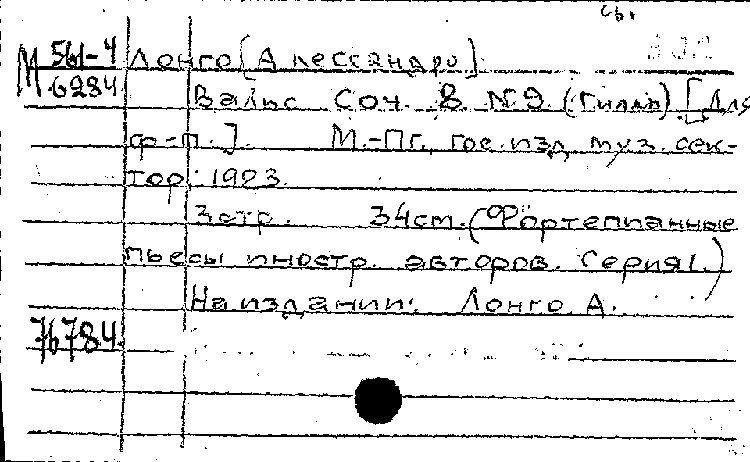 М 561-4
6284
Лонго [Алессандро].
Вальс Соч. 8. №9. (Гилль) [Для
ф-п.]. М.-Пг., гос. изд. муз. сек-
тор. 1923.
3 стр. 34 см. (Фортепианные
пьесы иностр. авторов. Серия I.)
На издании: Лонго А.
76784.